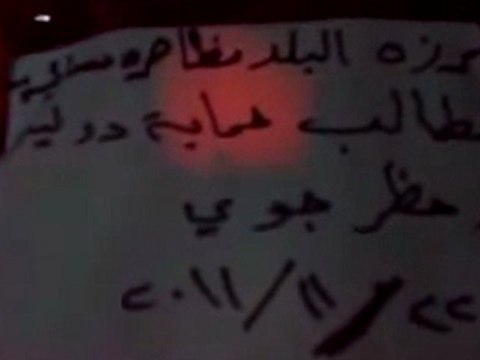 برزه البلد مظاهره مسائية
نطالب حماية دولية
حظر جوي
٢٢/١١/٢٠١١